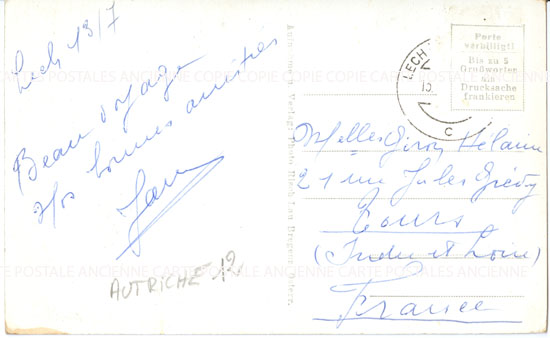 Lech 13/7
Beau voyage
Nos bonnes amitiés
AUTRICHE 12
LECH
C
Porto
verbilligt!
Bis zu 5
Grußworten
als
Drucksache
frankieren
Melles Giron Hélaine
21 rue Jules Grévy
Tours
(Indre et Loire)
France
CARTE POSTALES ANCIENNE COPIE COPIE COPIE CARTE POSTALE ANCIENNE
CARTE POSTALE ANCIENNE CARTE POSTALE ANCIENNE CARTE POSTALE ANCIENNE